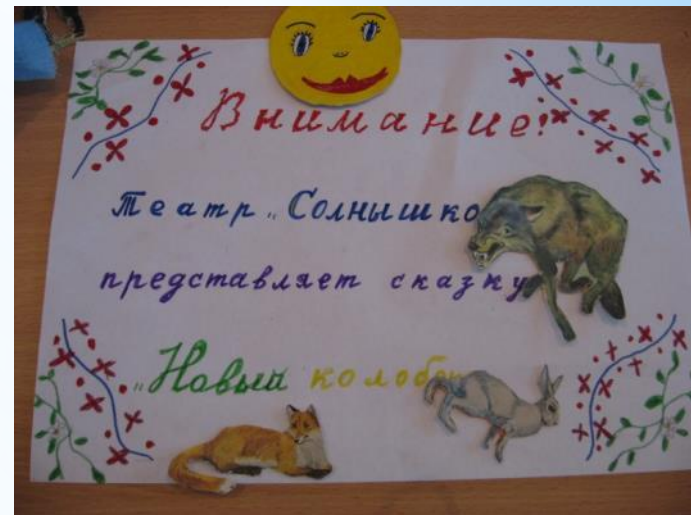 Внимание!
Театр „Солнышко
представляет сказку
„Новый колобо